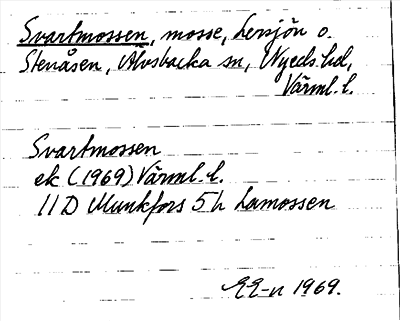 Svartmossen, mosse, Lersjön o.
Stenåsen, Älvsbacka sn, Nyeds hd,
Värml. l.
Svartmossen
ek (1969) Värml. l.
11D Munkfors 5h Lamossen
EE-n 1969.